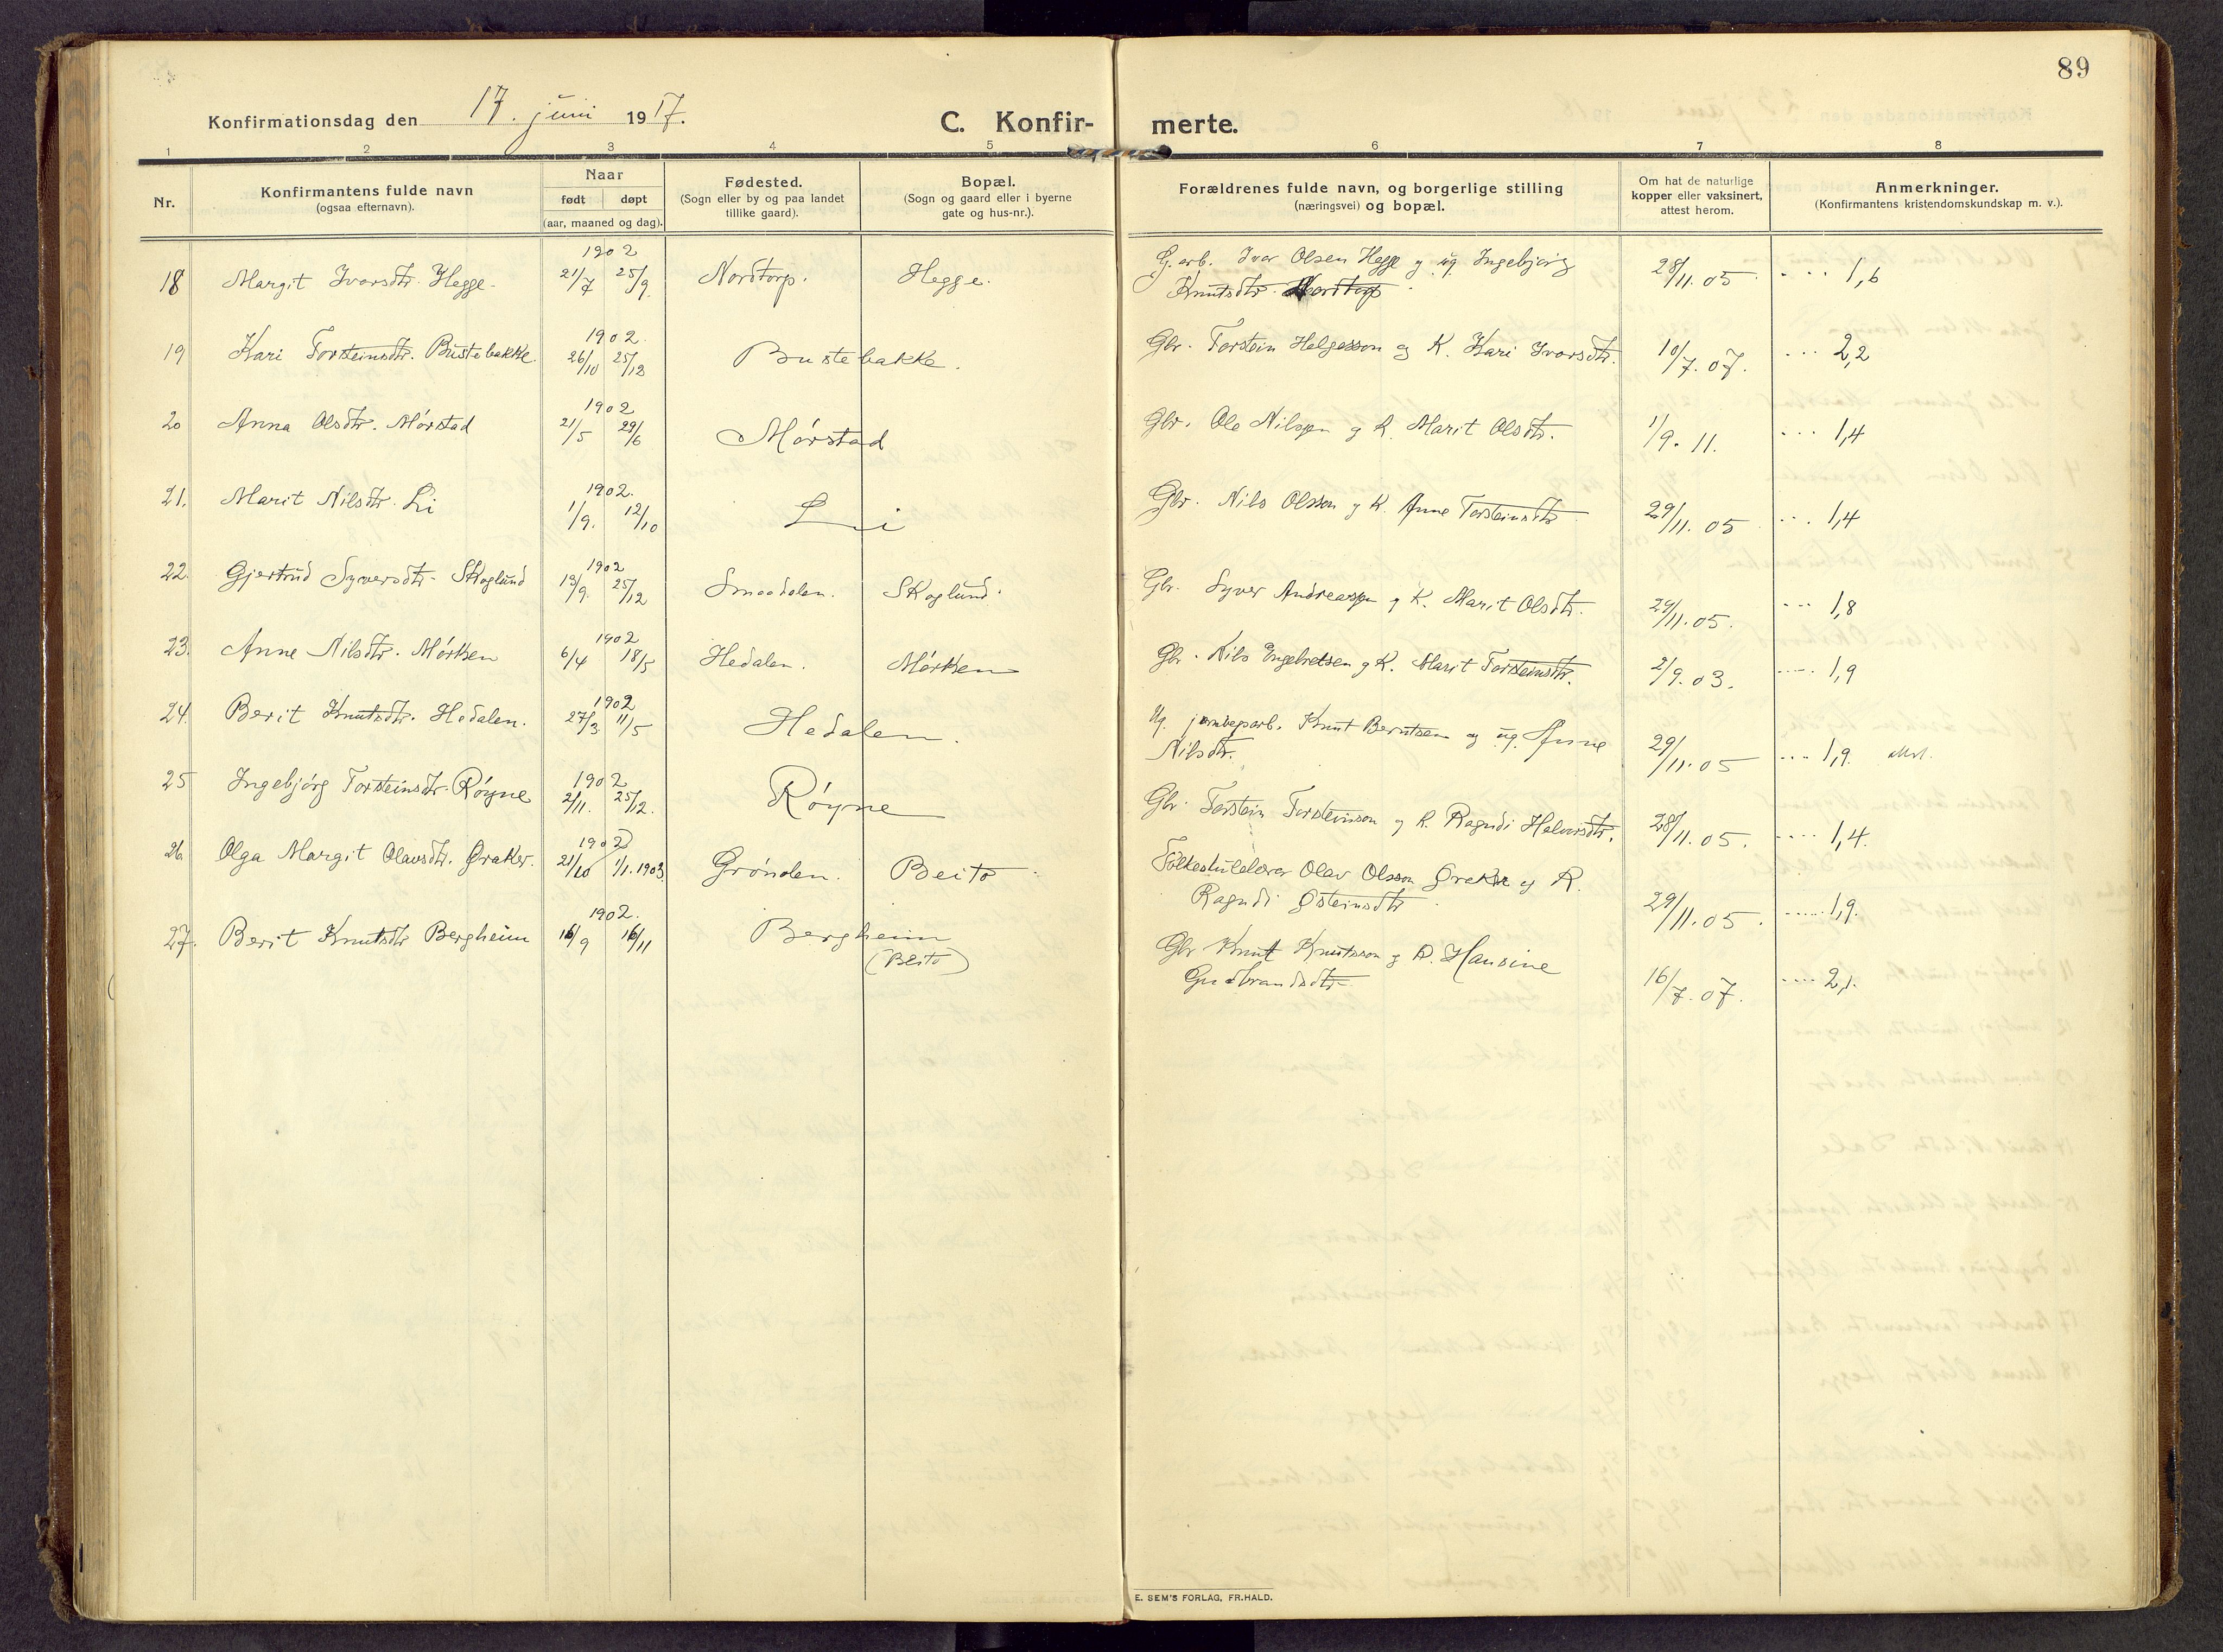 89
Konfirmationsdag den 17. juni 1917.
C. Konfir- merte.
1 2 3 4 5 6 7 8
Nr.
Konfirmantens fulde navn
(ogsaa efternavn).
Naar
født døpt
(aar, maaned og dag).
Fødested.
(Sogn eller by og paa landet
tillike gaard).
Bopæl.
(Sogn og gaard eller i byerne
gate og hus-nr.).
Forældrenes fulde navn, og borgerlige stilling
(næringsvei) og bopæl.
Om hat de naturlige
kopper eller vaksinert,
attest herom.
Anmerkninger.
(Konfirmantens kristendomskundskap m. v.).
1902
18 Margit Ivarsdtr. Hegge. 21/7 25/9. Nordtorp. Hegge. G. arb. Ivar Olsen Hegge g ug. Ingebjørg 28/11. 05. .... 1,6
Knutsdtr. Nordtorp
1902.
19 Kari Torsteinsdtr. Bustebakke. 26/10 25/12 Bustebakke. Gbr. Torstein Helgesson og K. Kari Ivarsdtr. 10/7. 07. ... 2,2
1902
20 Anna Olsdtr. Mørstad 21/5 29/6 Mørstad Gbr. Ole Nilssen g K. Marit Olsdtr. 1/9. 11. ... 1,4
1902.
21. Marit Nilsdtr. Li 1/9. 12/10 Li Gbr. Nils Olsson g K. Anne Torsteinsdtr. 29/11. 05 ... 1,4
1902
22. Gjertrud Syversdtr. Skoglund 13/9. 25/12 Smaadalen. Skoglund. Gbr. Syver Andreassen g K. Marit Olsdtr. 29/11. 05. ... 1,8
1902
23. Anne Nilsdtr. Mørken 6/4 18/5 Hedalen. Mørken Gbr. Nils Engebretsen g K. Marit Torsteinsdtr. 2/9. 03. .... 1,9
1902
24. Berit Knutsdtr. Hedalen. 27/3. 11/5 Hedalen. Ug. jernbanearb. Knut Berntsen og ug. Anne 29/11. 05 .... 1,9.
Nilsdtr.
1902
25 Ingebjørg Torsteinsdtr. Røyne 2/11. 25/12. Røyne Gbr. Torstein Torsteinson g K. Ragndi Halvorsdtr. 28/11. 05. .... 1,4.
1902
26. Olga Margit Olavsdtr. Øraker. 21/10 1/1. 1903. Grønolen. Beito Folkeskulelærar Olav Olsson Øraker og K. 29/11. 05. .... 1,9.
Ragndi Østeinsdtr.
1902.
27. Berit Knutsdtr. Bergheim 16/9 16/11 Bergheim Gbr Knut Knutsson g K. Hansine 16/7. 07. .... 2,1.
(Beito) Gudbrandsdtr.
E. SEM'S FORLAG, FR.HALD.